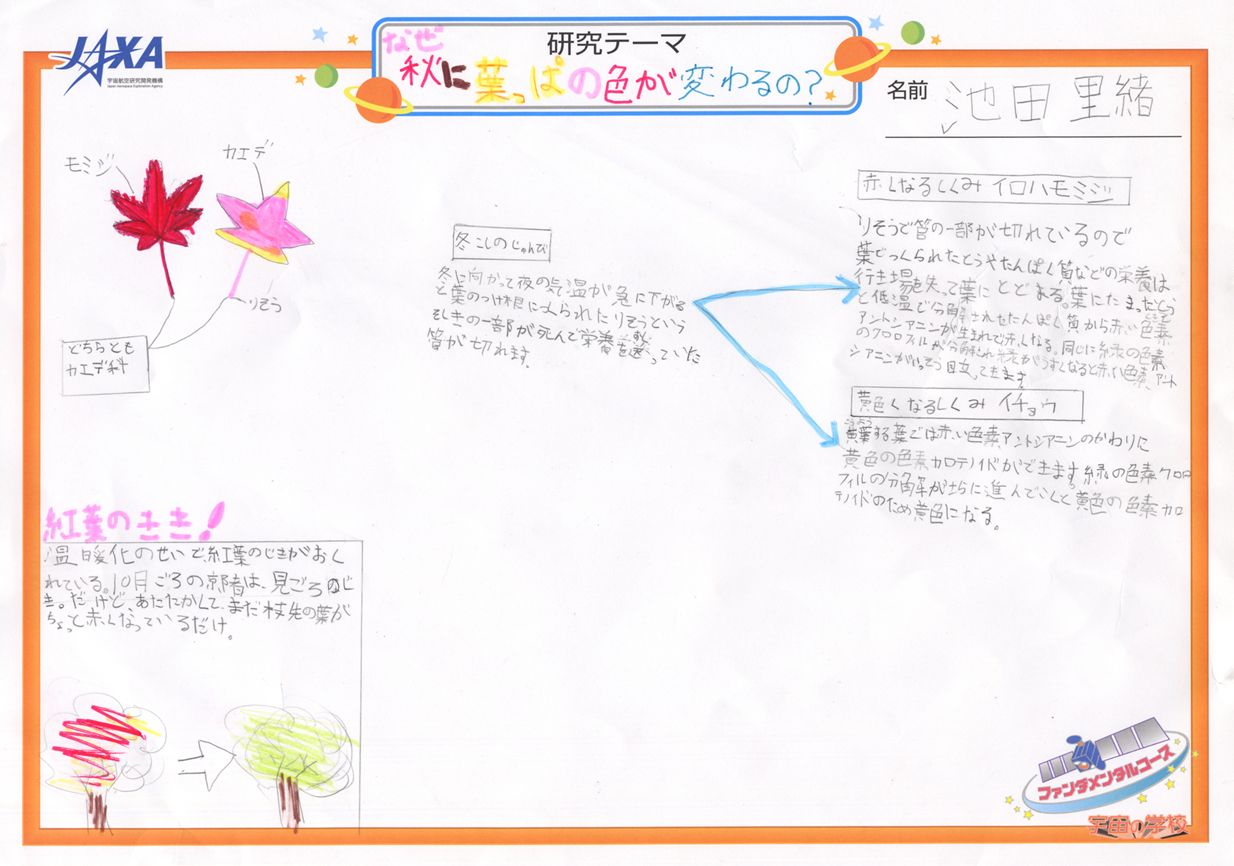 JAXA
宇宙航空研究開発機構
Japan Aerospace Exploration Agency
研究テーマ
なぜ
秋に葉っぱの色が変わるの?
名前 池田里緒
モミジ
カエデ
りそう
どちらとも
カエデ科
冬こしのじゅんび
冬に向かって夜の気温が急に下がる
と葉のつけ根につくられたりそうという
そしきの一部が死んで栄養を運んでいた
管が切れます。
赤くなるしくみ イロハモミジ
りそうで管の一部が切れているので
葉でつくられたとうやたんぱく質などの栄養は
行き場を失って葉にとどまる。葉にたまったとう
と低温で分解されたたんぱく質から赤い色素
アントシアニンが生まれて赤くなる。同じに緑の色素
のクロロフィルが分解され緑がうすくなると赤い色素、アント
シアニンがいっそう目立ってきます
黄色くなるしくみ イチョウ
こうよう
黄葉する葉では赤い色素アントシアニンのかわりに
黄色の色素カロテノイドができます。緑の色素クロロ
フィルの分解がさらに進んでいくと黄色の色素カロ
テノイドのため黄色になる。
紅葉のきき!
温暖化のせいで、紅葉のじきがおく
れている。10月ごろの京都は、見ごろのじ
き。だけど、あたたかくて、まだ枝先の葉が
ちょっと赤くなっているだけ。
ファンダメンタルコース
宇宙の学校